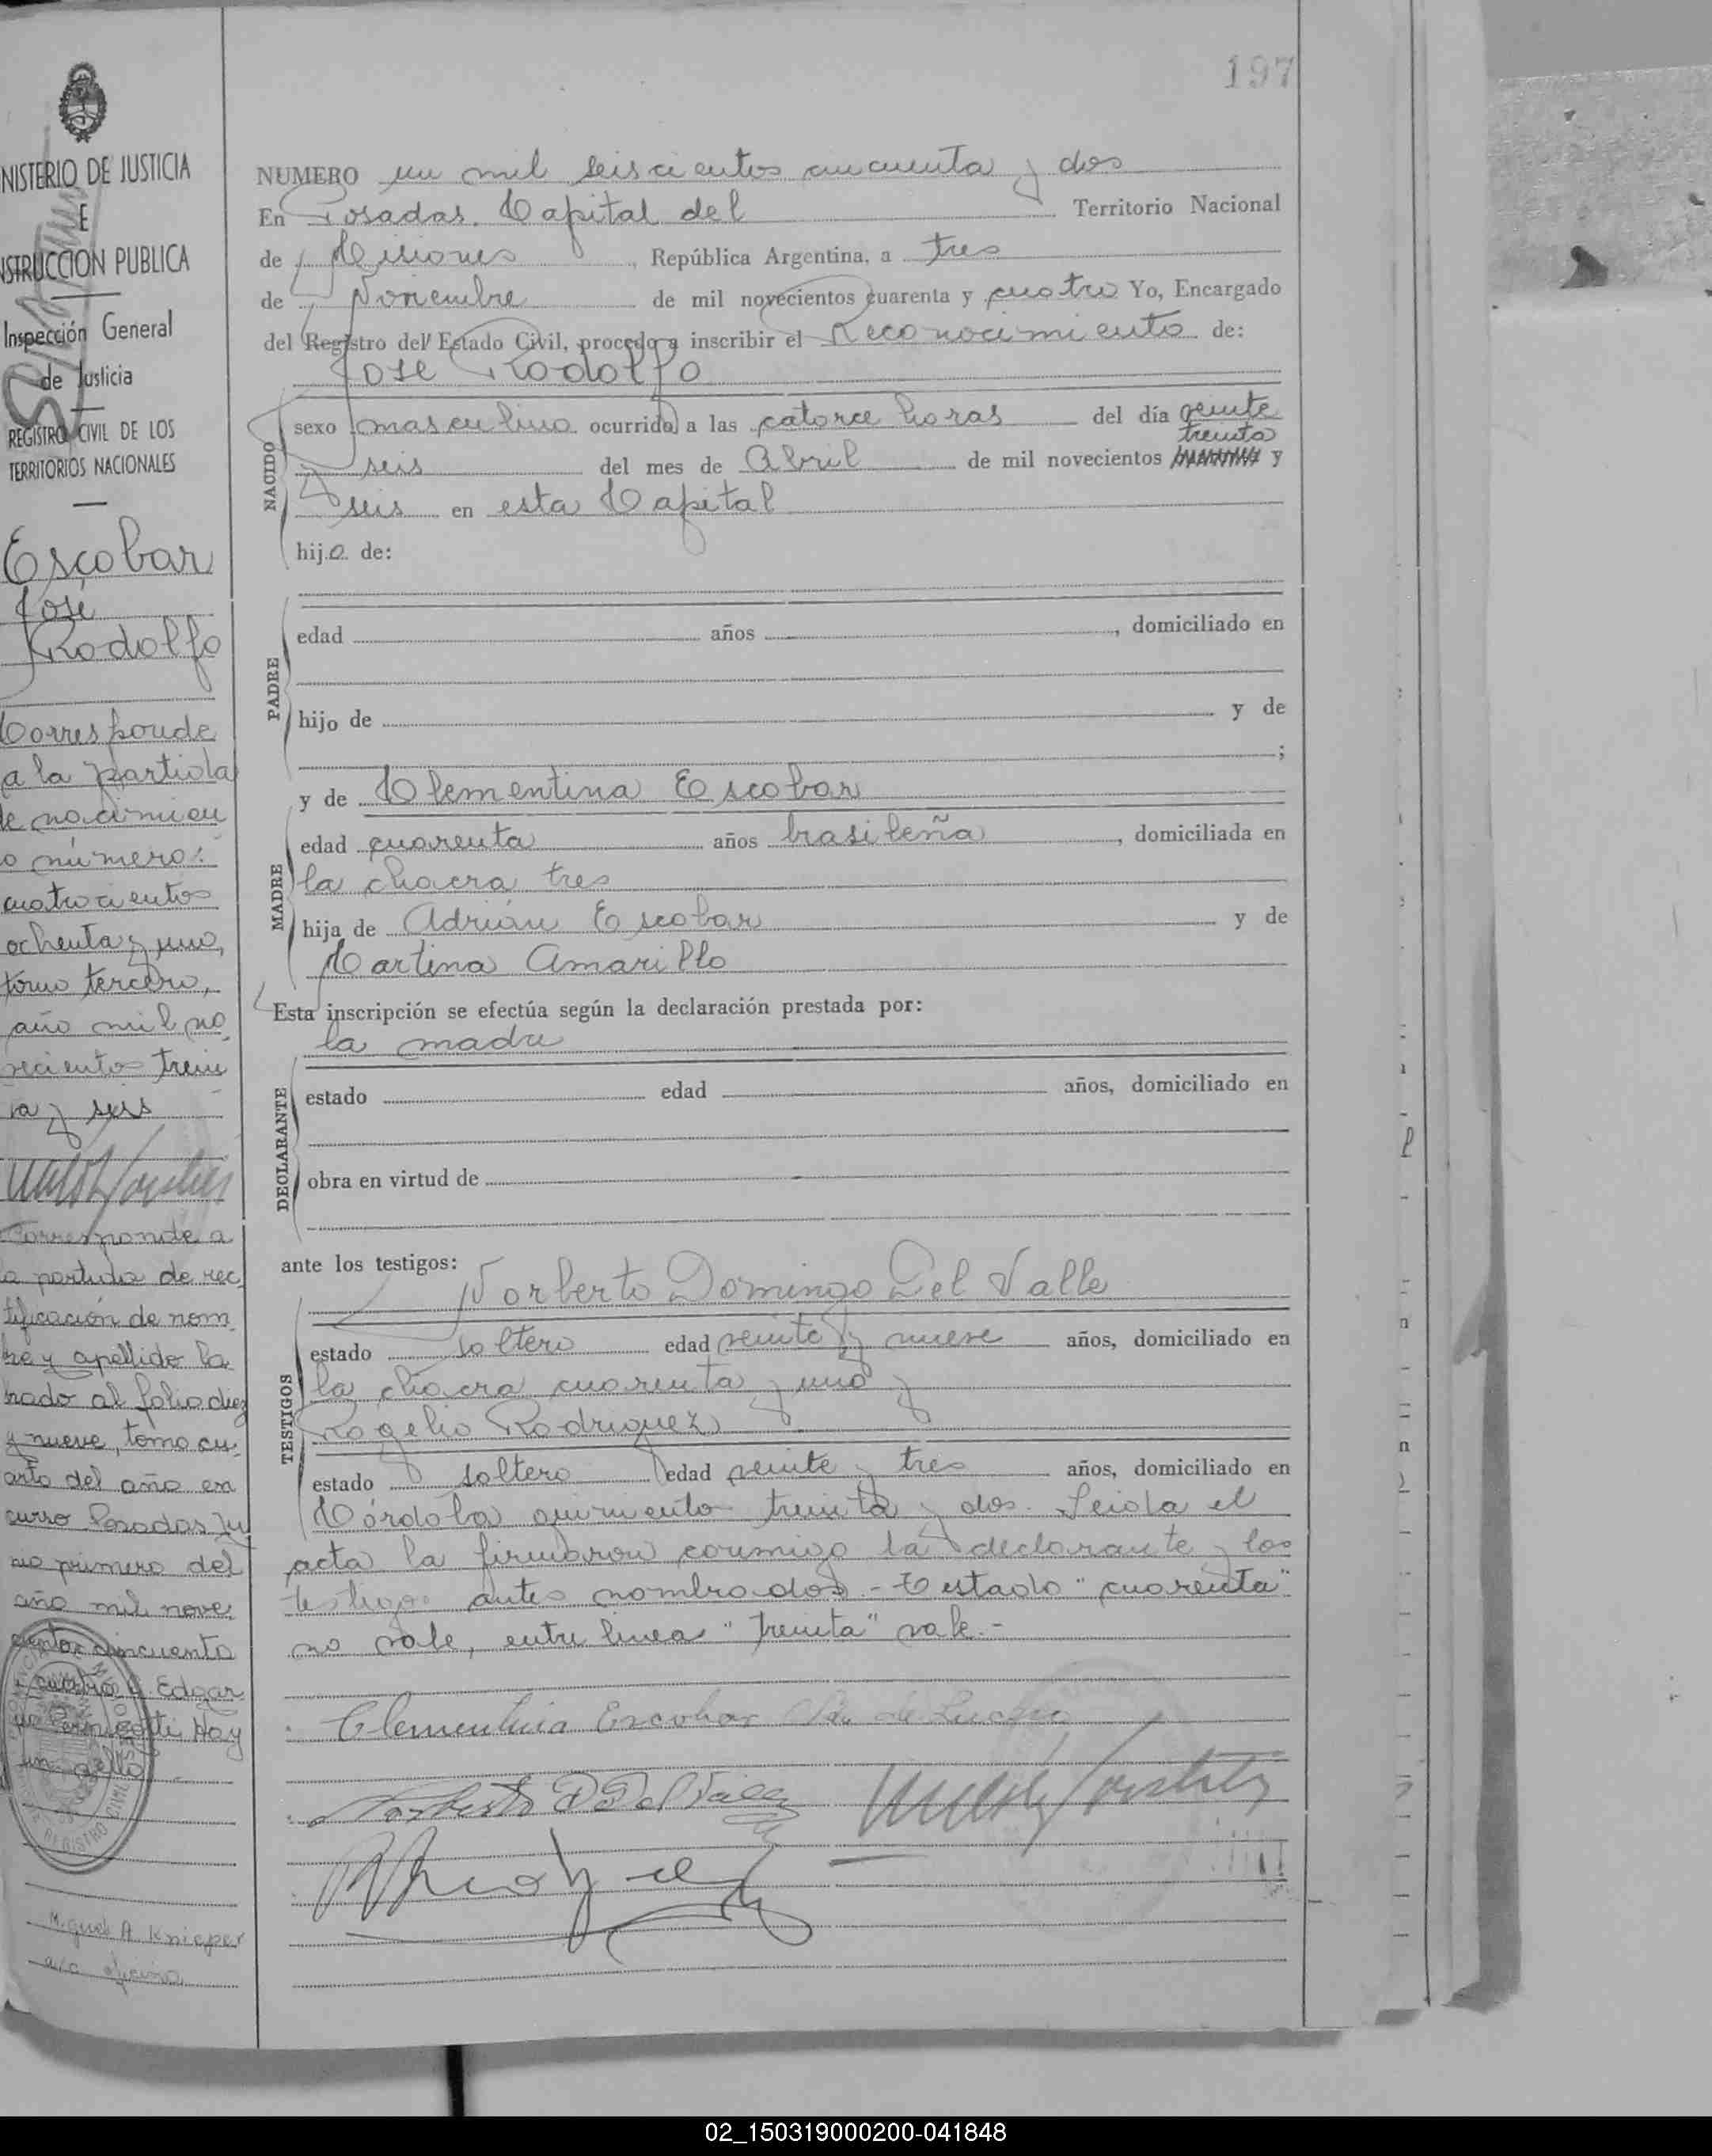 197
NISTERIO DE JUSTICIA
E
NSTRUCCION PUBLICA
Inspección General
de Justicia
REGISTRO CIVIL DE LOS
TERRITORIOS NACIONALES
Escobar
José
Rodolfo
Corresponde
a la partida
e nacimien
o número:
cuatrocientos
ochenta y uno,
tomo tercero,
año mil no
vecientos trein
ta y seis
Corresponde a
a partida de rec
tificación de nom
bre y apellido la
brado al folio diez
y nueve, tomo cu
arto del año en
curso Posadas Ju
nio primero del
año mil nove
cientos cincuenta
y cuatro Edgar
Hay
un sello
Miguel A Knieper
a/c oficina
NUMERO un mil seiscientos cincuenta y dos
En Posadas. Capital del Territorio Nacional
de Misiones, República Argentina, a tres
de Noviembre de mil novecientos cuarenta y cuatro Yo, Encargado
del Registro del Estado Civil, procedo a inscribir el Reconocimiento de:
Jose Rodolfo
NACIDO
sexo masculino ocurrido a las catorce horas del día veinte
treinta
y seis del mes de Abril de mil novecientos y
seis en esta Capital
hijo de:
PADRE
edad años , domiciliado en
hijo de y de
;
y de Clementina Escobar
MADRE
edad cuarenta años brasileña, domiciliada en
la chacra tres
hija de Adrián Escobar y de
Martina Amarillo
Esta inscripción se efectúa según la declaración prestada por:
la madre
DECLARANTE
estado edad años, domiciliado en
obra en virtud de
ante los testigos:
Norberto Domingo Del Valle
TESTIGOS
estado soltero edad veinte y nueve años, domiciliado en
la chacra cuarenta y uno y
Rogelio Rodriguez
estado soltero edad veinte y tres años, domiciliado en
Córdoba quiniento treinta y dos. Leida el
acta la firmaron conmigo la declarante y los
testigos antes nombrados.- Testado "cuarenta"
no vale, entre linea "treinta" vale.-
Clementina Escobar de
Norberto D Del Valle
02_150319000200-041848